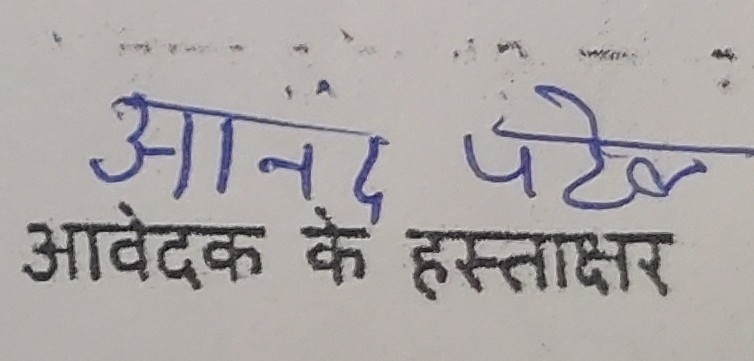 आनंद पटेल
आवेदक के हस्ताक्षर